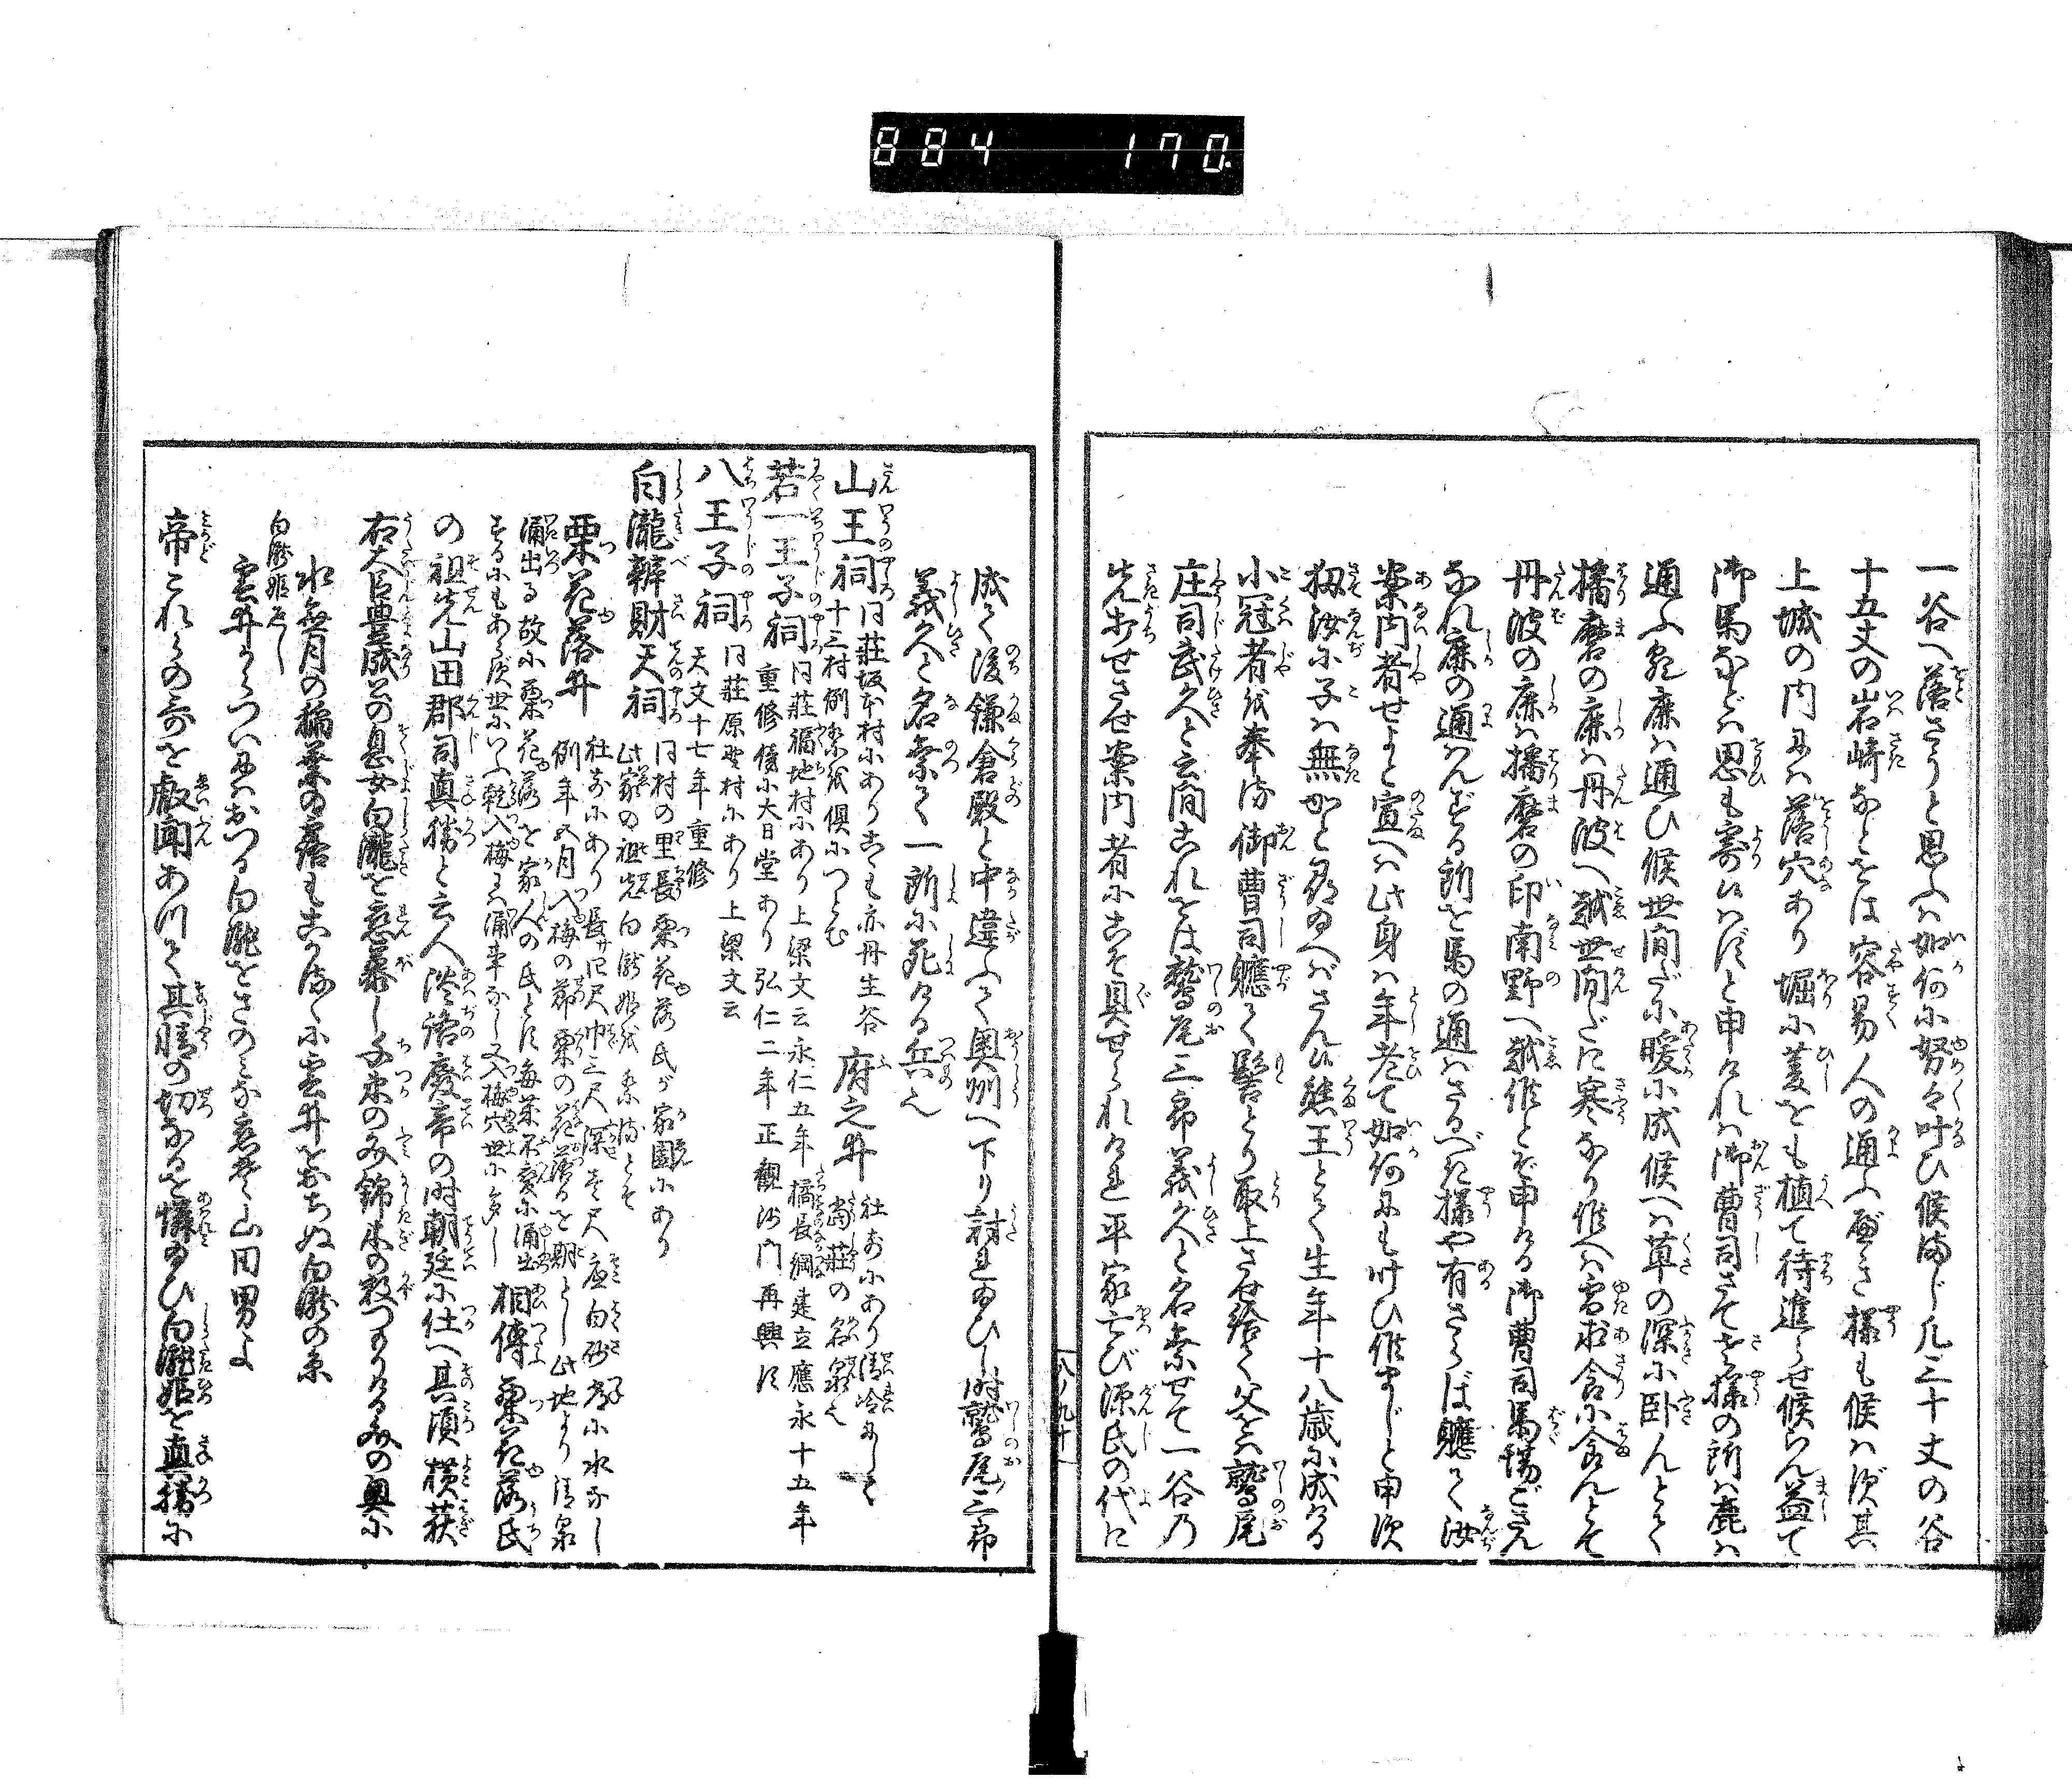 884 170
一谷へ落さうと思ふハ如何に努々叶ひ候まじ凡三十丈の谷
十五丈の岩崎などをは容易人の通ふべき様も候ハず其
上城の内にハ落穴あり堀に菱をも植て待進らせ候らん益て
御馬などハ思も寄候ハずと申ければ御曹司さてさ様の所ハ鹿ハ
通ふか鹿ハ通ひ候世間だに暖に成候へハ草の深に臥んとて
播磨の鹿ハ丹波へ越世間だに寒なり候へハ雪に食に食んとて
丹波の鹿ハ播磨の印南野へ越候とぞ申ける御曹司馬場ござん
なれ鹿の通ハんずる所を馬の通ハざるべき様や有さらば軈て汝
案内者せよと宣へハ此身ハ年老て如何にも叶ひ候まじと申す
扨汝に子ハ無かと問給へばさん候熊王とて生年十八歳に成ける
小冠者を奉る御曹司軈て髻とり取上させ給て父をハ鷲尾
庄司武久と云間これをは鷲尾三郎義久と名乗せて一谷の
先打せさせ案内者にこそ具せられけれ平家亡び源氏の代に
八ノ九十
成て後鎌倉殿と中違ふて奥州へ下り討れ給ひし時鷲尾三郎
義久と名乗て一所に死ける兵也
山王祠 同荘坂本村にあり こも亦丹生谷
十三村例祭を倶につとむ
府之井 社前にあり清冷にして
当荘の名泉也
若一王子祠 同荘福地村にあり上梁文云永仁五年橘長綱建立應永十五年
重修 後に大日堂あり 弘仁二年正觀沙門再興す
八王子祠 同荘原野村にあり上梁文云
天文十七年重修
白瀧辨財天祠 同村の里長栗花落氏が家園にあり
此家の祖先白瀧姫を祭るとぞ
栗花落井 社前にあり長サ四尺巾三尺深サ壱尺底白砂常に水なし
例年五月入梅の節栗の花落るを期とし此地より清泉
涌出る故に栗花落を家人の氏とす毎年不変に涌出
するにもあらず世にいふ乾入梅には涌事なし又入梅穴世に多し
相傳栗花落氏
の祖先山田郡司真勝と云人淡路廃帝の時朝廷に仕へ其頃横萩
右大臣豊成公の息女白瀧を恋慕し千束の文錦木の数つもりける文の奥に
水無月の稲葉の露もこがるゝに雲井をおちぬ白瀧の糸
白瀧姫返し
雲井からついにハおつる白瀧をさのみな恋そ山田男よ
帝これらの哥を叡聞あつて其情の切なるを憐給ひ白瀧姫を真勝に